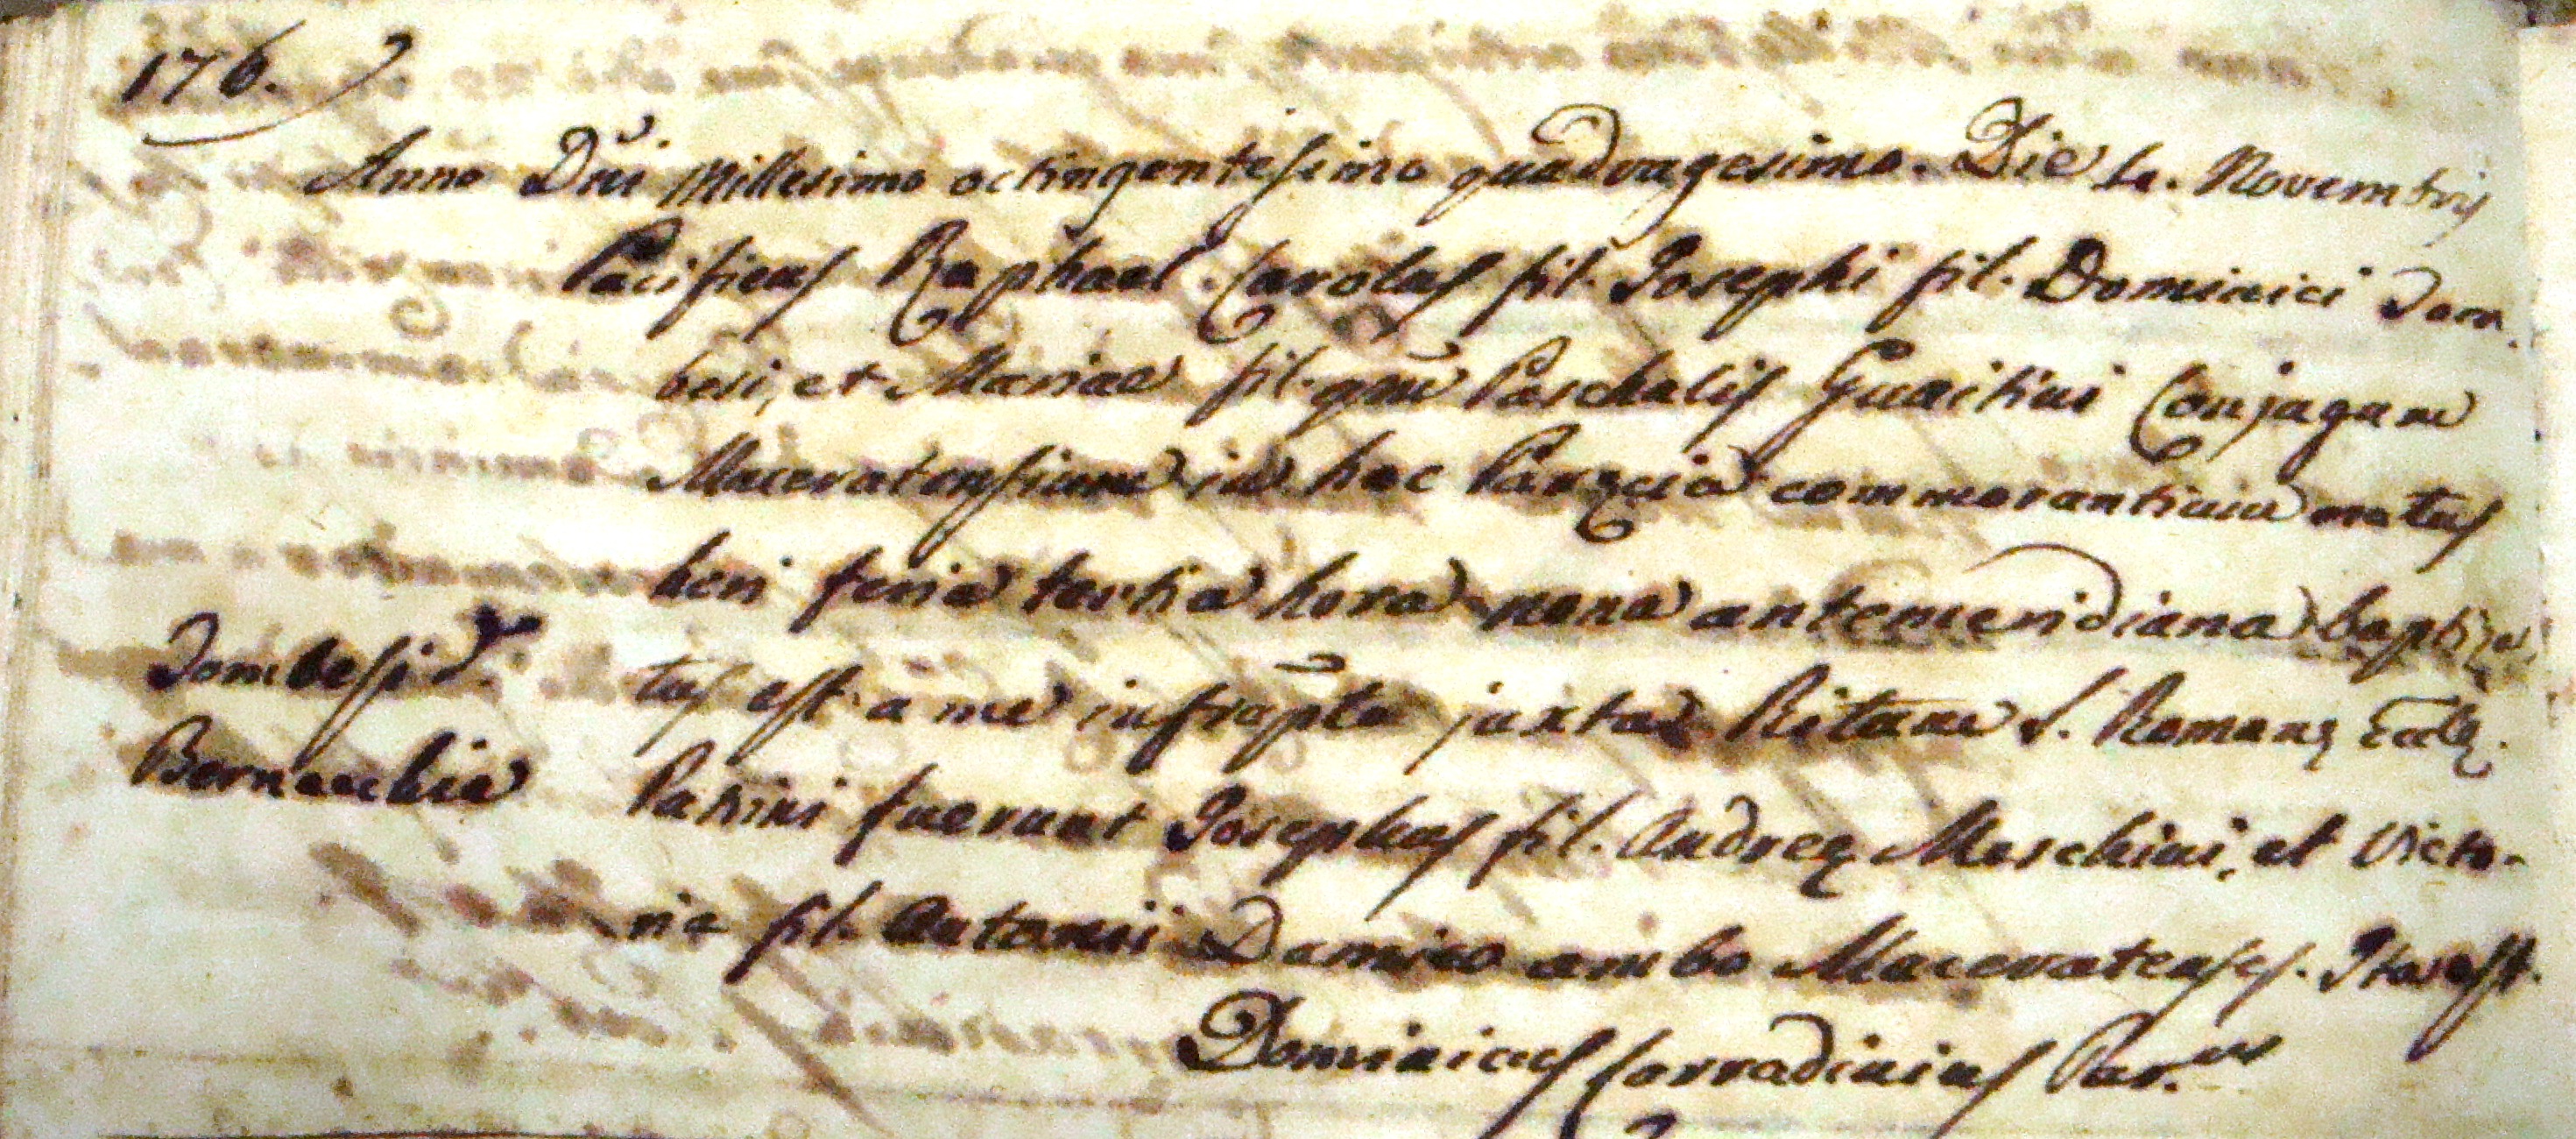 176.
Anno Dñi Millesimo octingentesimo quadragesimo. Die 4. Novembris
Pacificus Raphael Carolus fil. Josephi fil. Dominici Tom-
besi, et Mariae fil. qm̃ Paschalis Guaitini Conjugum
Maceratensium in hac Parꝙcia commorantium natus
heri feria tertia hora nona antemeridiana baptiza-
Tombesi d.º tus est a me infrãpto juxta Ritum S. Romanę Ecclę.
Bernacchia Patrini fuerunt Josephus fil. Andreę Meschini, et Victo-
ria fil. Antonii Damico ambo Maceratenses. Ita est.
Dominicus Corradinius Par.us